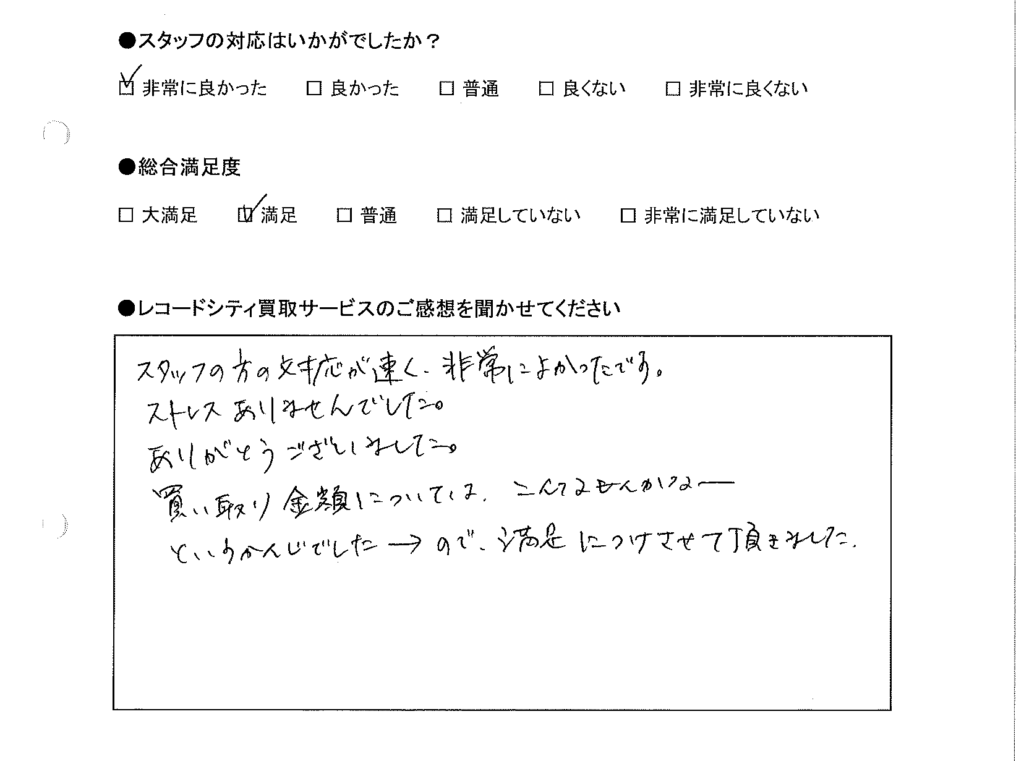 ●スタッフの対応はいかがでしたか？
☑ 非常に良かった □ 良かった □ 普通 □ 良くない □ 非常に良くない
●総合満足度
□ 大満足 ☑ 満足 □ 普通 □ 満足していない □ 非常に満足していない
●レコードシティ買取サービスのご感想を聞かせてください
スタッフの方の対応が速く、非常によかったです。
ストレスありませんでした。
ありがとうございました。
買い取り金額については、こんなもんかなー
というかんじでした→ので、満足につけさせて頂きました。